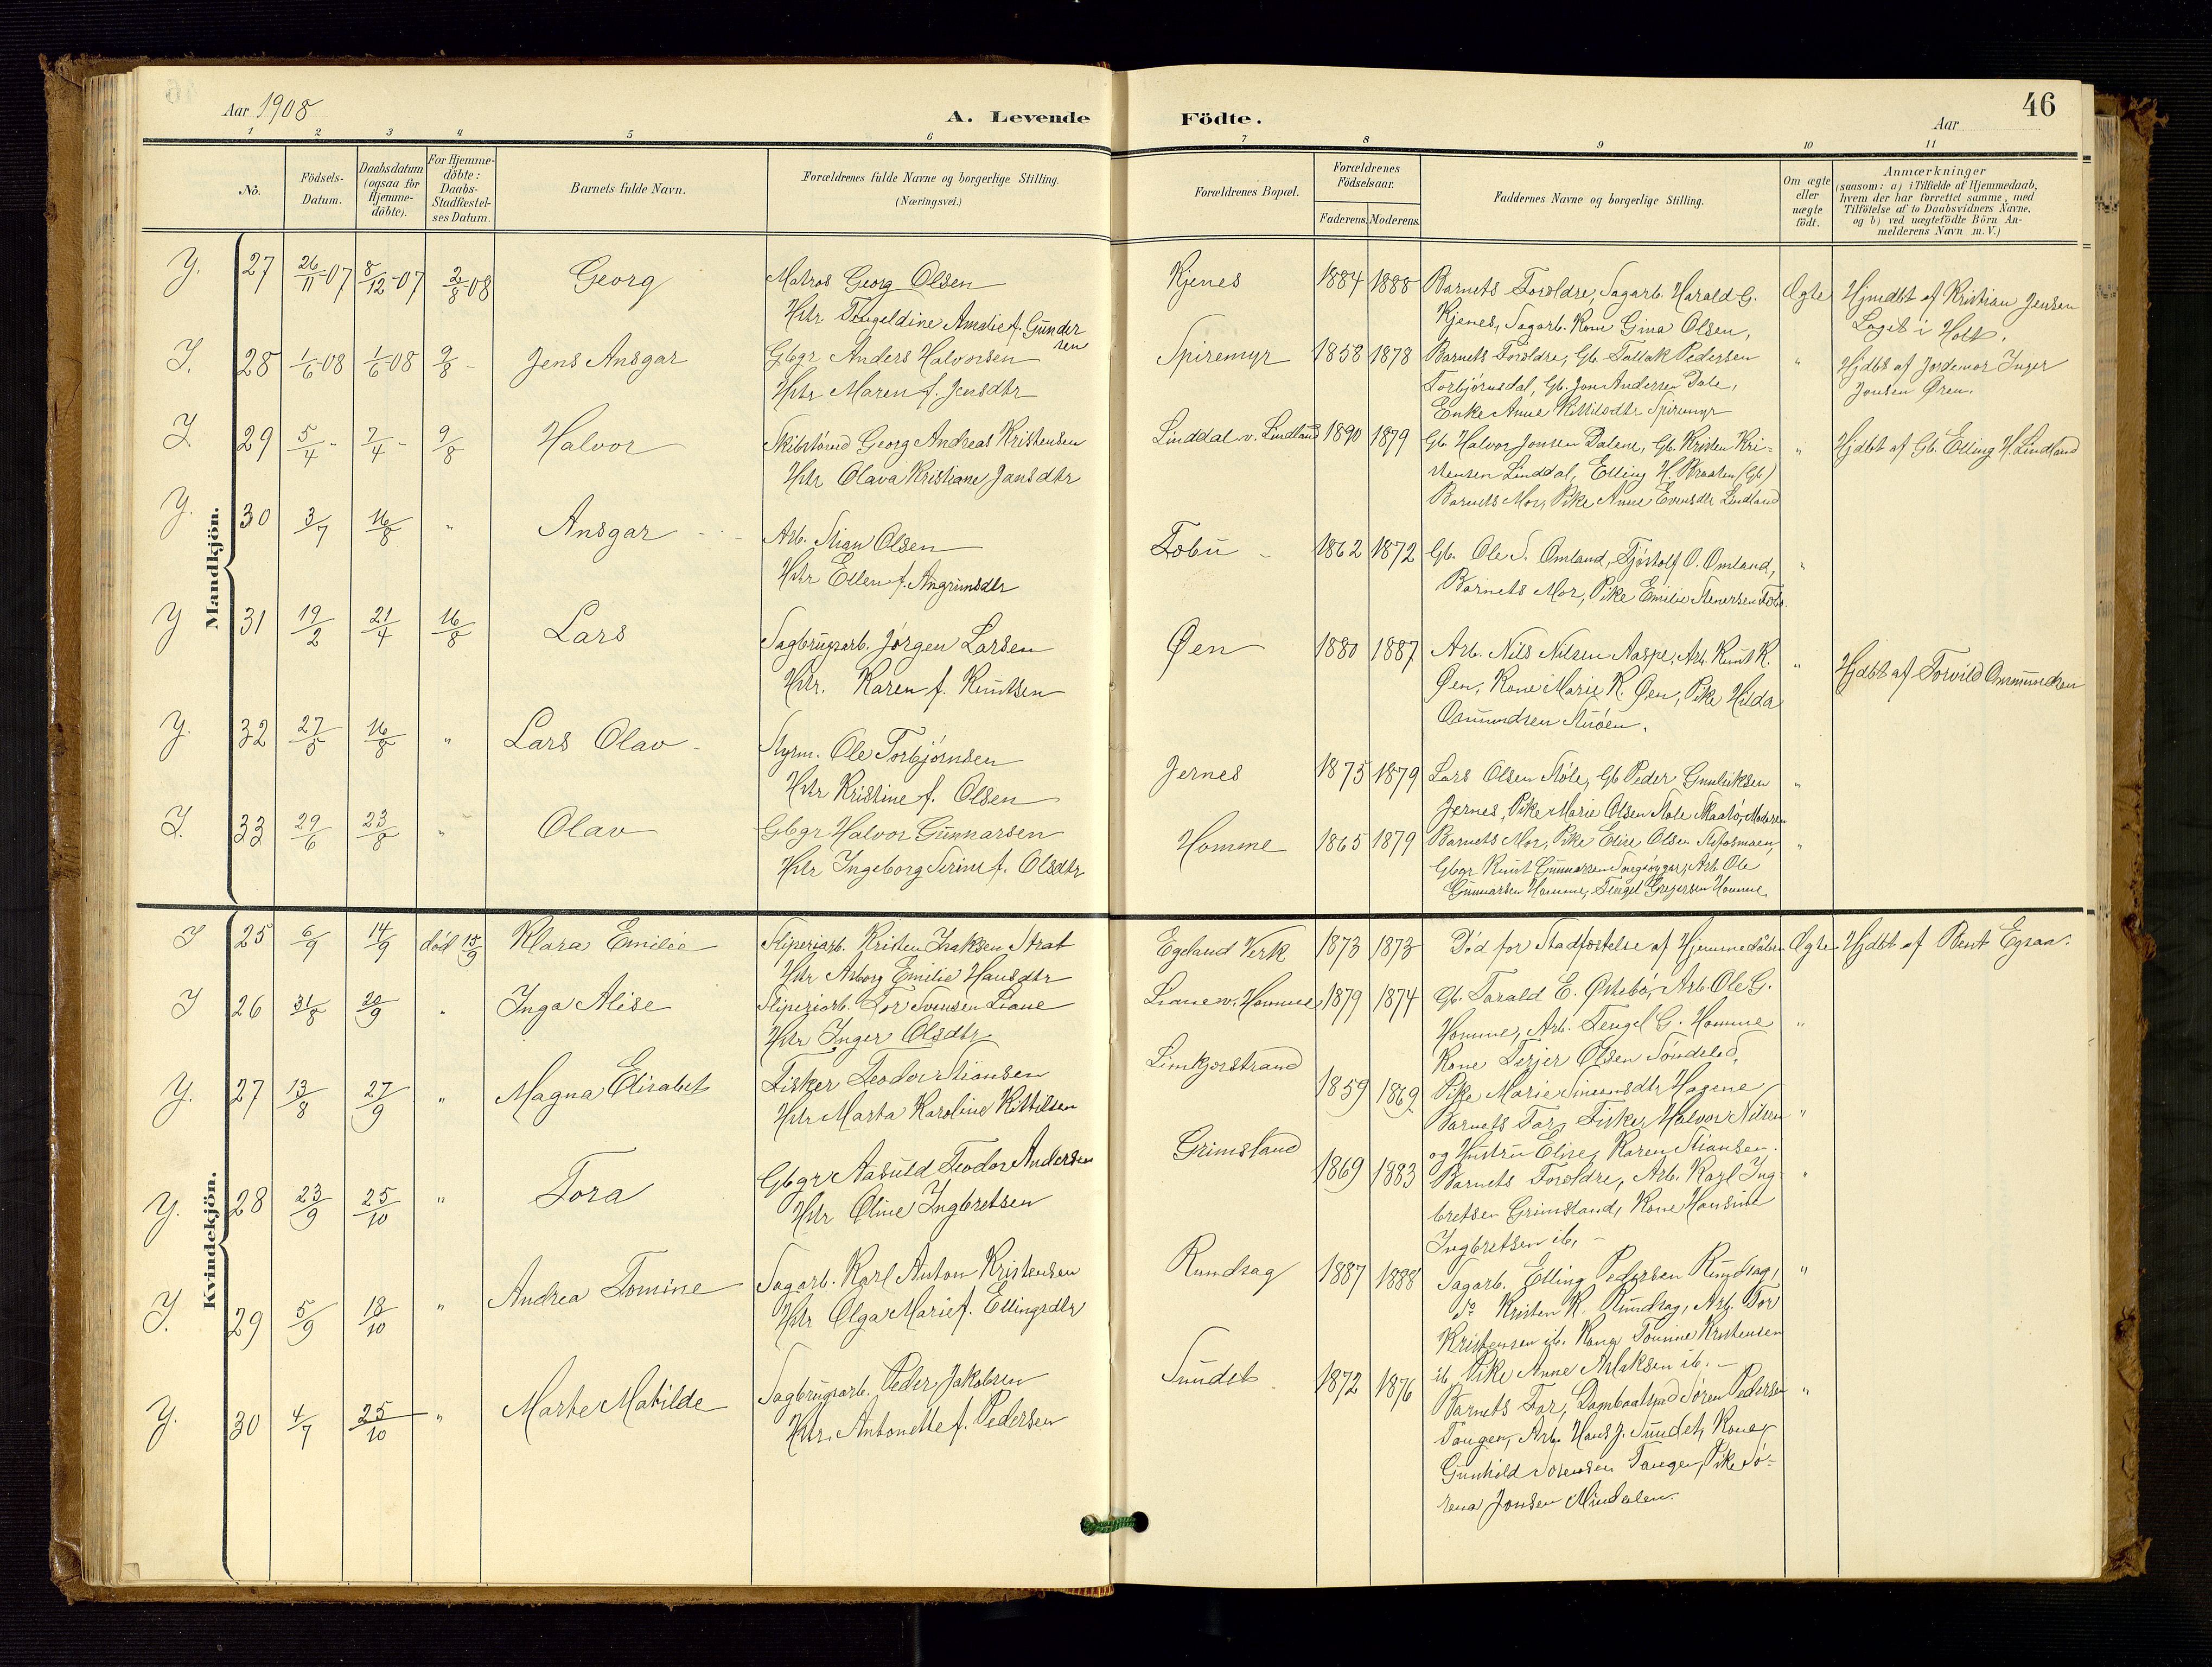 Aar 1908
A. Levende Födte.
Aar
46
1 2 3 4 5 6 7 8 9 10 11
No.
Födsels-Datum.
Daabsdatum (ogsaa for Hjemme-döbte).
For Hjemme-döbte: Daabs-Stadfæstel-ses Datum.
Barnets fulde Navn.
Forældrenes fulde Navne og borgerlige Stilling.
(Næringsvei.)
Forældrenes Bopæl.
Forældrenes Födselsaar.
Faderens. Moderens.
Faddernes Navne og borgerlige Stilling.
Om ægte eller uægte födt.
Anmærkninger
(saasom: a) i Tilfælde af Hjemmedaab,
hvem der har forrettet samme, med
Tilföielse af to Daabsvidners Navne,
og b) ved uægtefödte Börn An-
melderens Navn m. V.)
Mandkjön.
Y. 27 26/11-07 8/12-07 2/8-08 Georg
Matros Georg Olsen
Hstr Tengeldine Amalie f. Gunder
sen
Kjenes 1884 1888
Barnets Foreldre, Sagarb. Harald G.
Kjenes, Sagarb. Kone Gina Olsen,
Ægte
Hjmdbt af Kristian Jensen
i Holt.
I. 28 1/6-08 1/6-08 9/8 - Jens Ansgar
Gbgr Anders Halvorsen
Hstr Maren f. Jensdtr
Spiremyr 1858 1878
Barnets Foreldre, Gb. Tallak Pedersen
Torbjørnsdal, Gb. Jon Andersen Dale,
Enke Anne Kittilsdtr Spiremyr
"
Hjdbt af Jordemor Inger
Jonsen Øren.
I. 29 5/4 - 7/4 - 9/8 Halvor
Skibstømd Georg Andreas Kristensen
Hstr Olava Kristiane Jansdtr
Linddal v. Lindland 1890 1879
Gb. Halvor Jonsen Dalene, Gb. Kristen Kri-
stensen Linddal, Elling H. Braaten (Gb)
Barnets Mor, Pike Anne Evensdtr Lindland
"
Hjdbt af Gb. Elling H. Lindland
Y. 30 3/7 16/8 " Ansgar
Arb. Stian Olsen
Hstr Ellen f. Angrimsdtr
Fobu 1862 1872
Gb. Ole S. Omland, Tjøstolf O. Omland,
Barnets Mor, Pike Emilie Stenersen
"
Y 31 19/2 21/4 16/8 Lars
Sagbrugsarb. Jørgen Larsen
Hstr. Karen f. Knutsen
Øen 1880 1887
Arb. Nils Nilsen Aaspe, Arb. Knut K.
Øen, Kone Marie K. Øen, Pike Hilda
Osmundsen Stuøen.
"
Hjdbt af Torvild Osmundsen
Y. 32 27/5 16/8 " Lars Olav
Styrm. Ole Torbjørnsen
Hstr Kristine f. Olsen
Jernes 1875 1879
Lars Olsen Støle, Gb Peder Gunleiksen
Jernes, Pike Marie Olsen Støle Skaatø, Moderen
"
I. 33 29/6 23/8 " Olav
Gbgr Halvor Gunnarsen
Hstr Ingeborg Serine f. Olsdtr
Homme 1865 1879
Barnets Mor, Pike Elise Olsen
Gbgr Knut Gunnarsen Arb. Ole
Gunnarsen Homme, Tengel Gregersen Homme
"
Kvindekjön.
I 25 6/9 14/9 død 15/9 Klara Emilie
Sliperiarb. Kristen Isaksen Strat
Hstr Asborg Emilie Hansdtr
Egeland Verk 1873 1873
Død før Stadfæstelse af Hjemmedåben
Ægte
Hjdbt af Bent Egraa.
I 26 31/8 20/9 " Inga Alise
Sliperiarb. Tor Svensen Liane
Hstr Inger Olsdtr
Liane v. Homme 1879 1874
Gb. Tarald E. Østebø, Arb. Ole G.
Homme, Arb. Tengel G. Homme
Kone Terjer Olsen Søndeled.
"
Y. 27 13/8 27/9 " Magna Elisabet
Fisker Teodor Stiansen
Hstr Marta Karoline Kittilsen
Limkjærstrand 1859 1869
Pike Marie Simonsdtr Hagene
Barnets Far, Fisker Halvor Nilsen
og Hustru Elise, Karen Stiansen.
"
Y. 28 23/9 25/10 " Tora
Gbgr Aasuld Teodor Andersen
Hstr Oline Ingbretsen
Grimsland 1869 1883
Barnets Foreldre, Arb. Karl Ing-
bretsen Grimsland, Kone Hansine
Ingbretsen ib. -
"
I. 29 5/9 18/10 " Andrea Tomine
Sagarb. Karl Anton Kristensen
Hstr Olga Marie f. Ellingsdtr
Rundsag 1887 1888
Sagarb. Elling Pedersen Rundsag,
do Kristen K. Rundsag, Arb. Tor
Kristensen ib. Kone Tomine Kristensen
ib, Pike Anne Aslaksen ib. -
"
Y. 30 4/7 25/10 " Marte Matilde
Sagbrugsarb. Peder Jakobsen
Hstr. Antonette f. Pedersen
Sundet 1872 1876
Barnets Far, Søren Pedersen
Tangen, Arb. Hans J. Sundet, Kone
Gunhild Sørensen Tangen, Pike Sø-
rena Jonsen Mindalen.
"